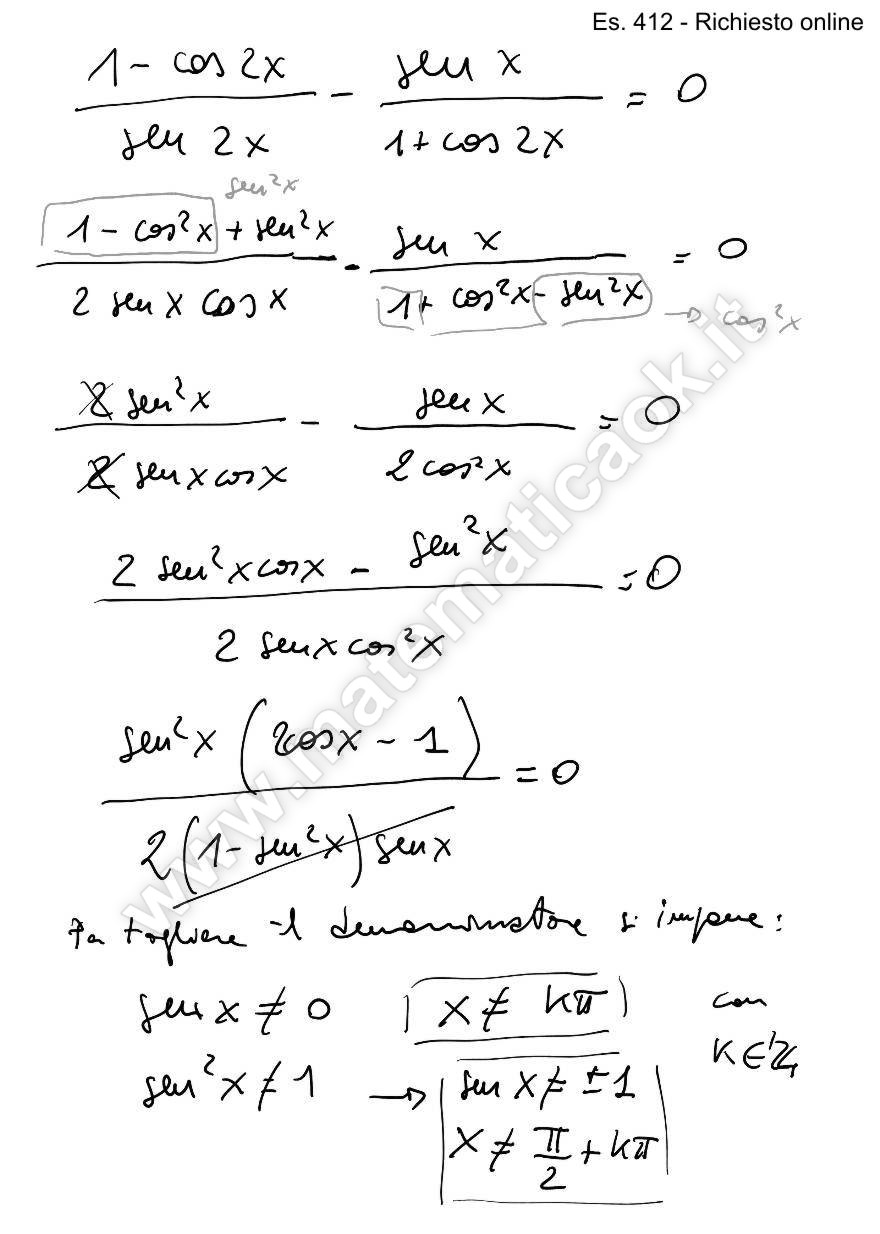 Es. 412 - Richiesto online
1 - cos 2x / sen 2x - sen x / 1 + cos 2x = 0
sen²x
1 - cos²x + sen²x / 2 sen x cos x - sen x / 1 + cos²x - sen²x = 0
→ cos²x
2 sen²x / 2 sen x cos x - sen x / 2 cos²x = 0
2 sen²x cos x - sen²x / 2 sen x cos²x = 0
sen²x (2cos x - 1) / 2 (1 - sen²x) sen x = 0
Per togliere il denominatore si impone:
sen x ≠ 0 x ≠ kπ con
K ∈ ℤ
sen²x ≠ 1 → sen x ≠ ±1
x ≠ π/2 + kπ
www.matematicaok.it